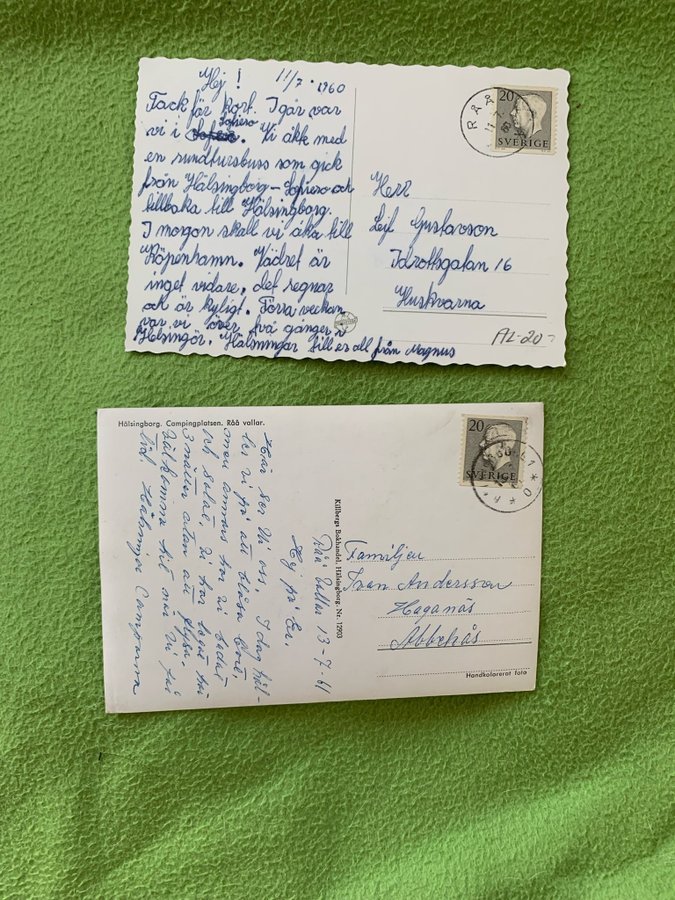 Hej! 11/7. 1960
Tack för kort. I går var
Sofiero
vi i Sofiero. Vi åkte med
en rundtursbuss som gick
från Hälsingborg - Sofiero och
tillbaka till Hälsingborg.
I morgon skall vi åka till
Köpenhamn. Vädret är
inget vidare, det regnar
och är kyligt. Förra veckan
var vi över två gånger i
Helsingör. Hälsningar till er all från Magnus
RÅÅ
20
SVERIGE
Herr
Leif Gustavson
Idrottsgatan 16
Huskvarna
AL-20:-
Hälsingborg. Campingplatsen. Råå vallar.
Råå Vallar 13-7-61
Hej på Er.
Här ser Ni oss. I dag hål-
ler vi på att blåsa bort,
men annars har vi badat
och solat. Vi har legat här
3 nätter utan att frysa.
Välkomna hit mor Ni får
tid. Hälsningar Camparna
Killbergs Bokhandel, Hälsingborg. Nr. 12903
20
SVERIGE
Familjen
Ivan Andersson
Haganäs
Abbekås
Handkolorerat foto